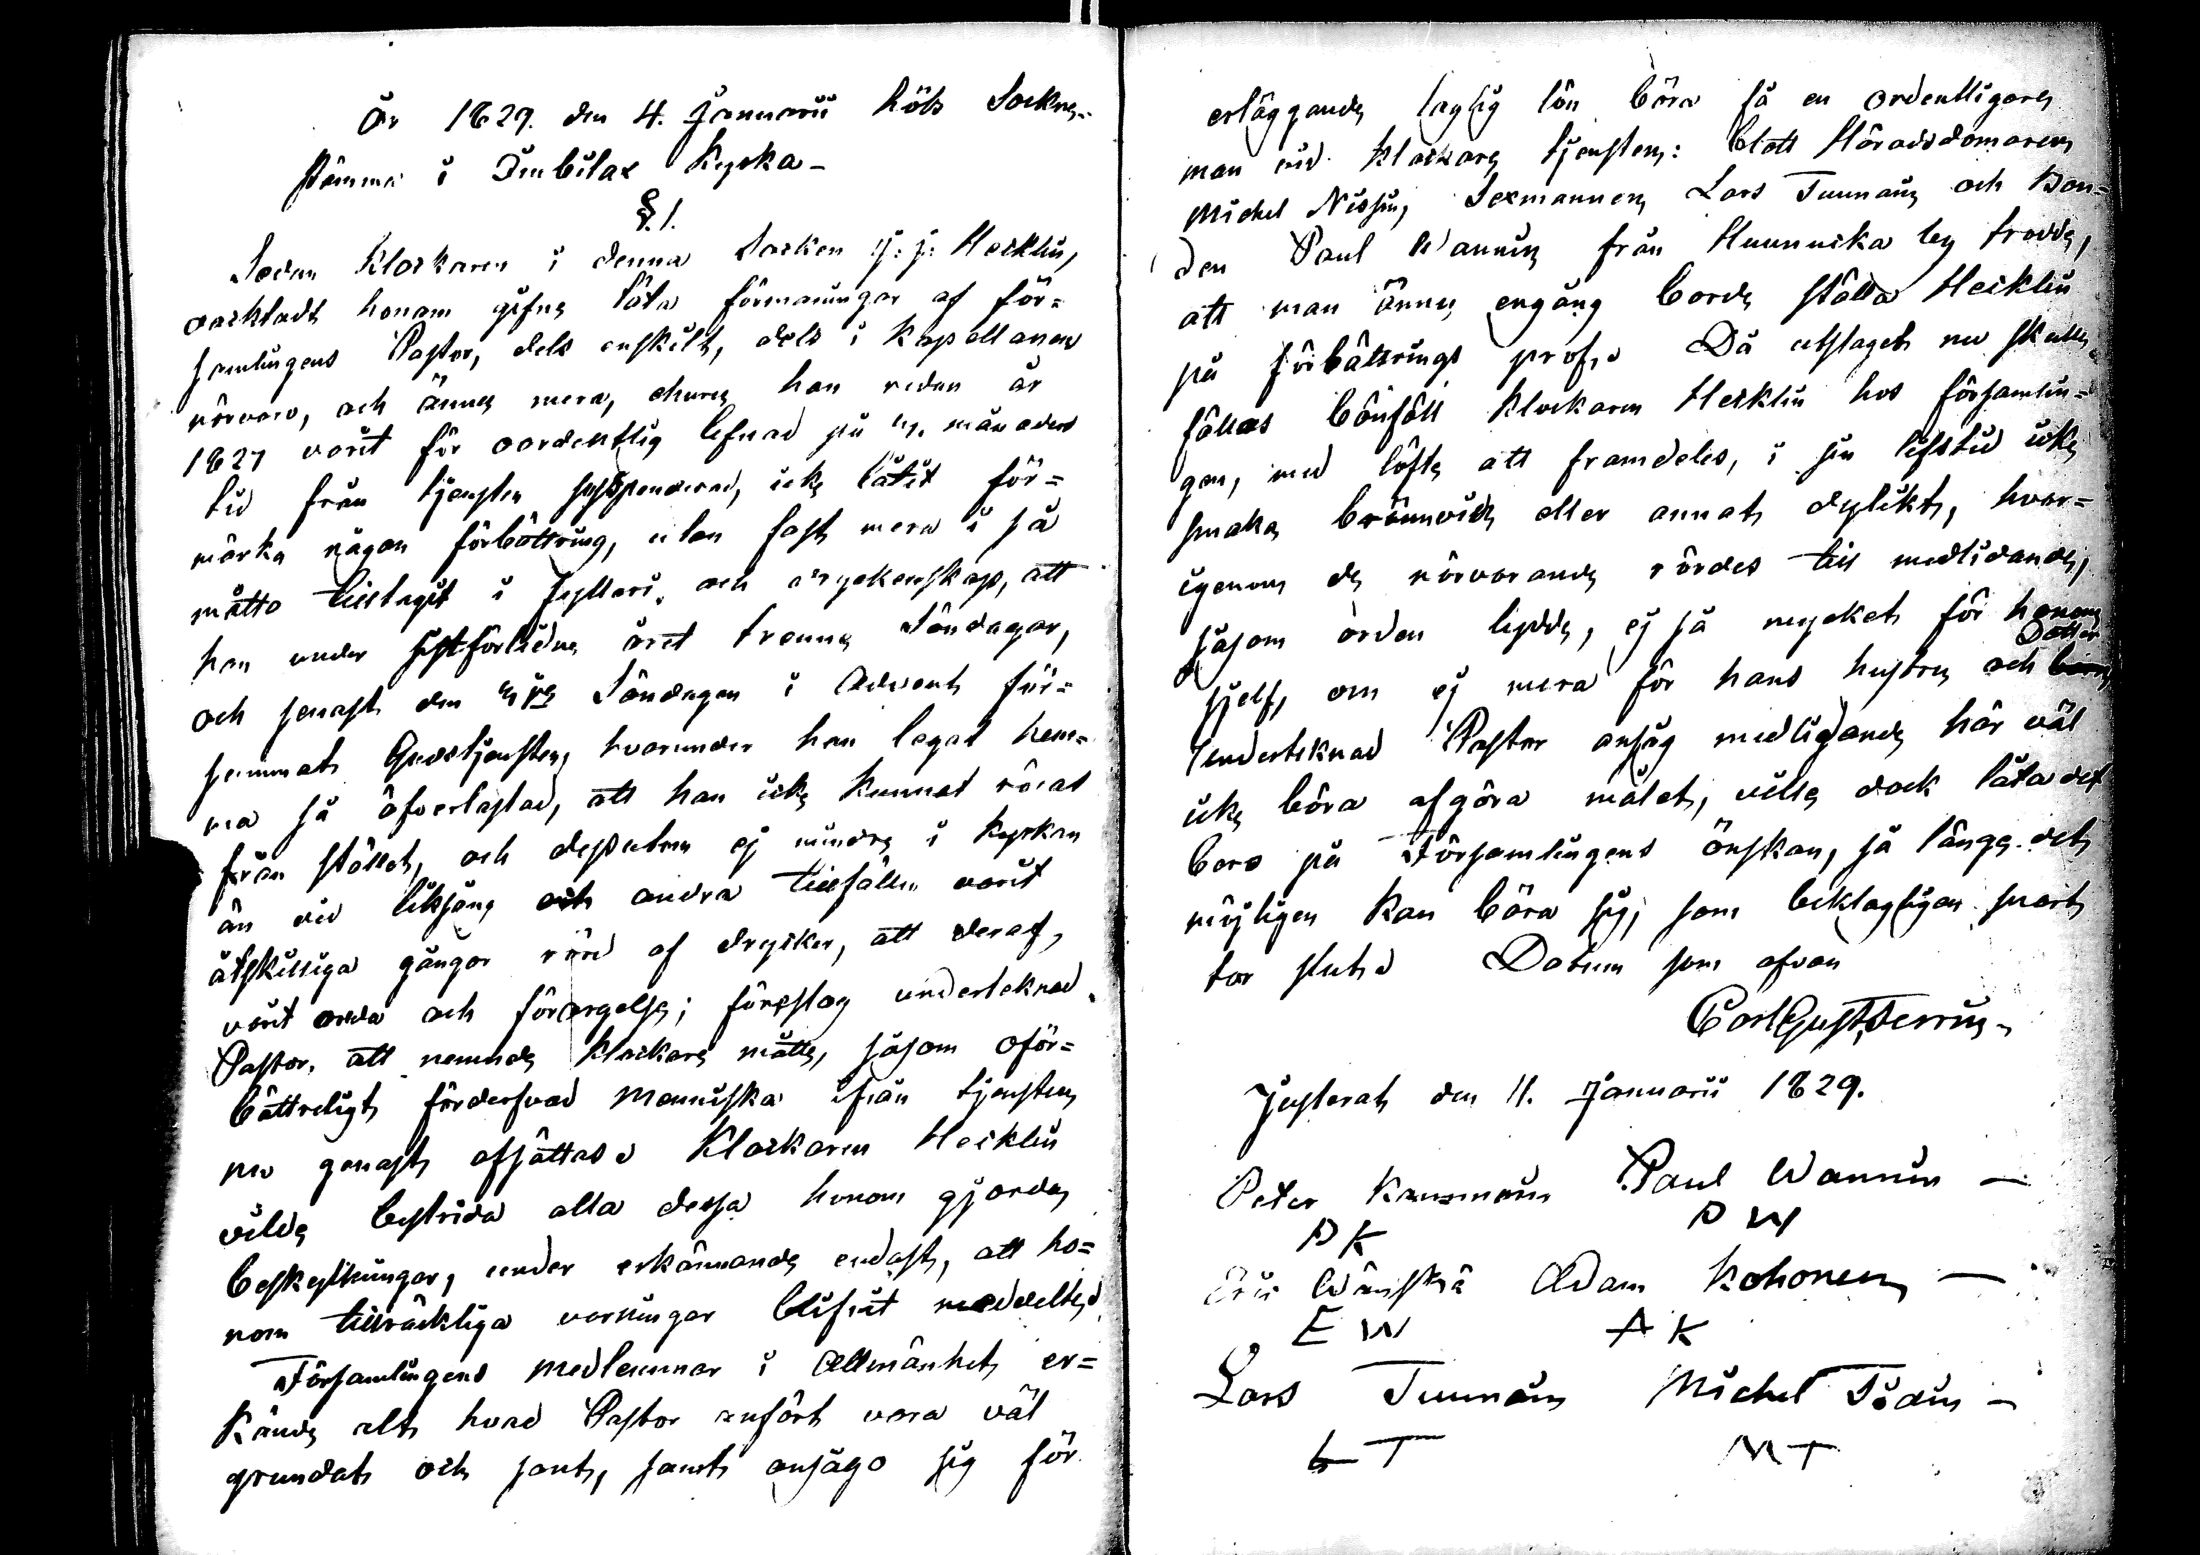 År 1829. den 4. Januarii höls Sockne-
stämma i Imbilax Kyrka -
§. 1.
Sedan Klockaren i denna Socken J: J: Hecklin,
oacktadt honom gifne täta förmaningar af för=
samlingens Pastor, dels enskilt, dels i Kapellanens
närvaro, och ännu mera, ehuru han redan är
1827 varit för oordentlig lefnad på månaders
tid från tjensten suspenderad, icke låtit för=
märka någon förbättring, utan fast mera i så
måtto tilltagit i fylleri och dryckenskap, att
han under sistförledne året trenne Söndagar,
och senast den Söndagen i Advent för=
summat Gudstjensten, hvarunder han legat hem=
ma så öfverlastad, att han icke kunnat röras
från stället, och dessutom ej mindre i kyrkan
än vid liksång och andra tillfällen varit
åtskilliga gångor rörd af drycker, att deraf
varit oreda och förargelse; föreslog undertecknad
Pastor, att nemnde klockare måtte, såsom oför=
bättreligt förderfvad menniska ifrån tjensten
nu genast afsättas. Klockaren Hecklin
vilde bestrida alla dessa honom gjorde
beskyllningar, under erkännande endast, att ho=
nom tillräckliga varningar blifvit meddelte.
Församlingens medlemmar i Allmänhet er=
kände alt hvad Pastor anfört vara väl
grundat och sant, samt ansågo sig för
erläggande laglig lön böra få en ordentligare
man vid klockare tjensten: blott Häradsdomaren
Michel Nissin, Sexmannen Lars Tuunain och Bon=
den Paul Wannin från Hunnuka by trodde,
att man ännu engång borde ställa Hecklin
på förbättrings prof. Då utslaget nu skulle
fällas bönföll Klockaren Hecklin hos församlin=
gen, med löfte att framdeles, i sin lifstid icke
smaka brännvin eller annat dylikt, hvar=
igenom de närvarande rördes till medlidande,
såsom orden lydde, ej så mycket för honom
sjelf, om ej mera för hans hustru och Dotter
Undertecknad Pastor ansåg medlidande här väl
icke böra afgöra målet, ville dock låta det
bero på Församlingens önskan, så länge det
möjligen kan bära sig, som beklagligen snart
tar slut. Datum som ofvan
Carl Gust. Ferrin
Justerat den 11. Januarii 1829.
Peter Paul Wannin -
PK PW
Eric Wänskä Adam Kohonen -
EW AK
Lars Tuunain Michel Tiain -
LT MT